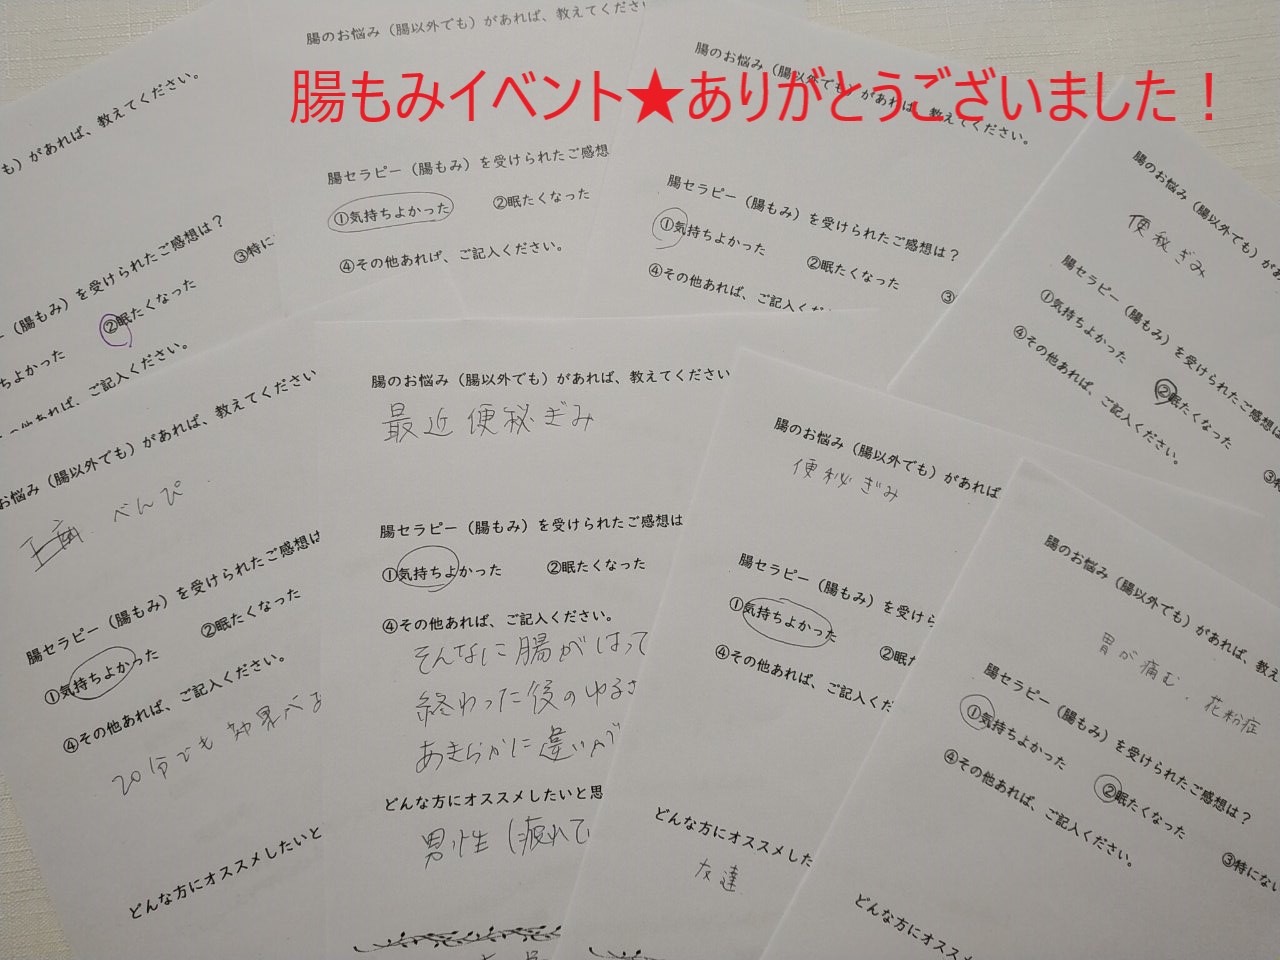 腸もみイベント★ありがとうございました！
も）があれば、教えてください。
（腸もみ）を受けられたご感想は？
ちよかった
②眠たくなった
③特に
ご記入ください。
腸のお悩み（腸以外でも）があれば、教えてくださ
腸セラピー（腸もみ）を受けられたご感想
①気持ちよかった
②眠たくなった
④その他あれば、ご記入ください。
腸のお悩み（腸以外でも）があれば、教えてください。
腸セラピー（腸もみ）を受けられたご感想は？
①気持ちよかった
②眠たくなった
③
④その他あれば、ご記入くだ
腸のお悩み（腸以外でも）があ
便秘ぎみ
腸セラピー（腸もみ）を受けられたご感想は
①気持ちよかった
②眠たくなった
③特
④その他あれば、ご記入ください。
お悩み（腸以外でも）があれば、教えてください
べんぴ
腸セラピー（腸もみ）を受けられたご感想は
①気持ちよかった
②眠たくなった
④その他あれば、ご記入ください。
20分でも効果
どんな方にオススメしたいと
腸のお悩み（腸以外でも）があれば、教えてください
最近便秘ぎみ
腸セラピー（腸もみ）を受けられたご感想は
①気持ちよかった
②眠たくなった
④その他あれば、ご記入ください。
そんなに腸がはって
終わった後のゆるさ
あきらかに違いので
どんな方にオススメしたいと思
男性（疲れて
腸のお悩み（腸以外でも）があれば
便秘ぎみ
腸セラピー（腸もみ）を受けら
①気持ちよかった
②眠た
④その他あれば、ご記入くだ
どんな方にオススメした
友達
腸のお悩み（腸以外でも）があれば、教え
胃が痛む、花粉症
腸セラピー（腸もみ）を受けられたご感想は？
①気持ちよかった
②眠たくなった
③特にない
④その他あれば、ご記入ください。
どんな方にオススメ